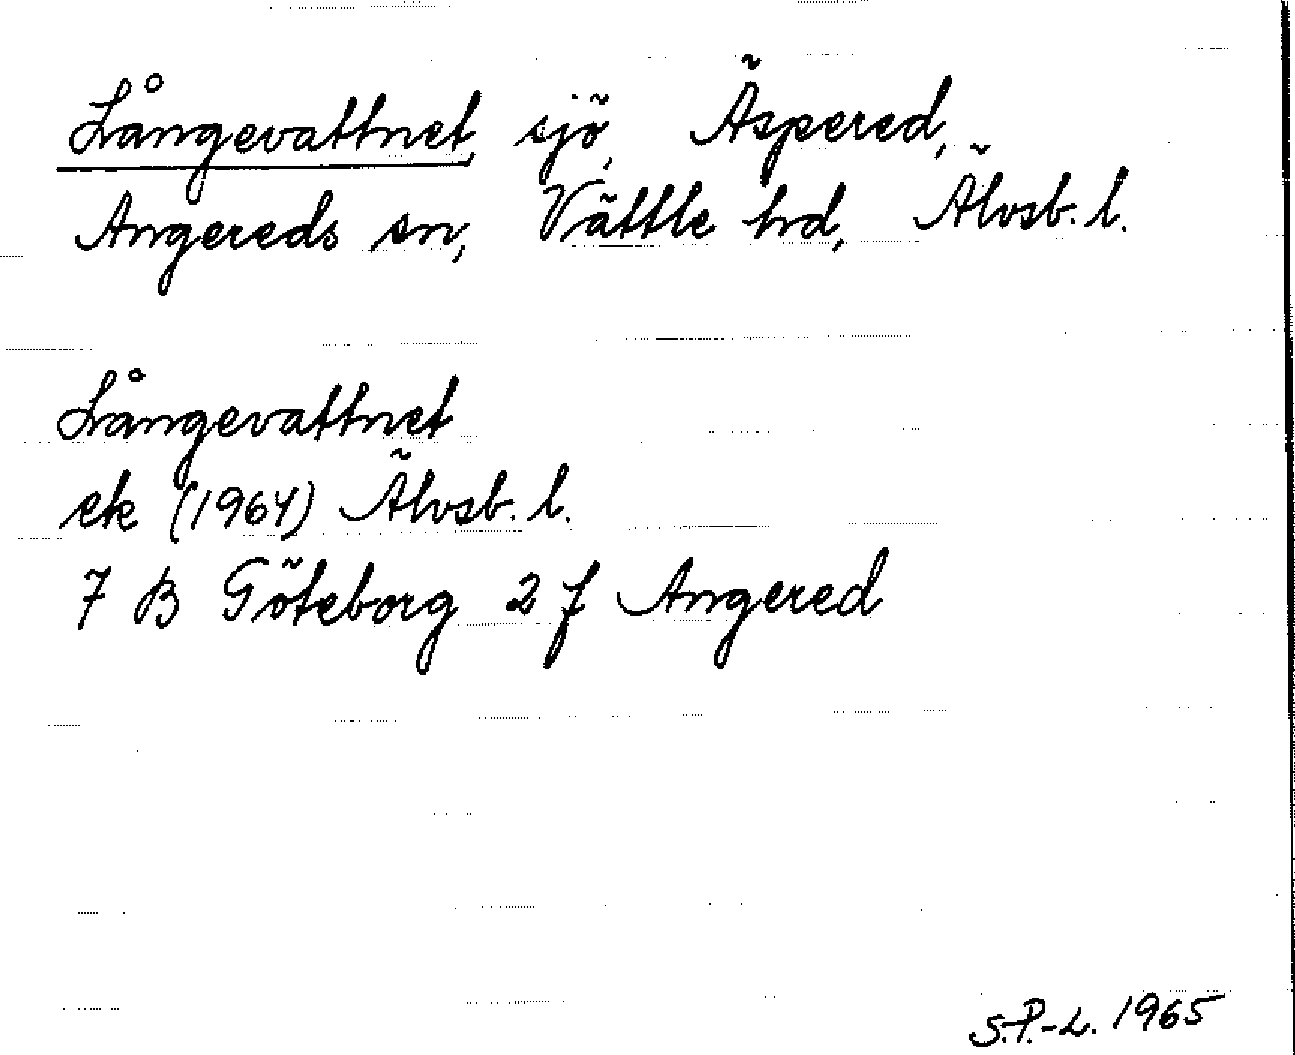 Långevattnet, sjö, Äspered,
Angereds sn, Vättle hd, Älvsb. l.
Långevattnet
ek (1964) Älvsb. l.
7 B Göteborg 2 f Angered
S.P.-L. 1965